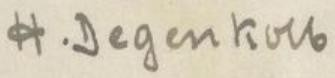 H. Degenkolb